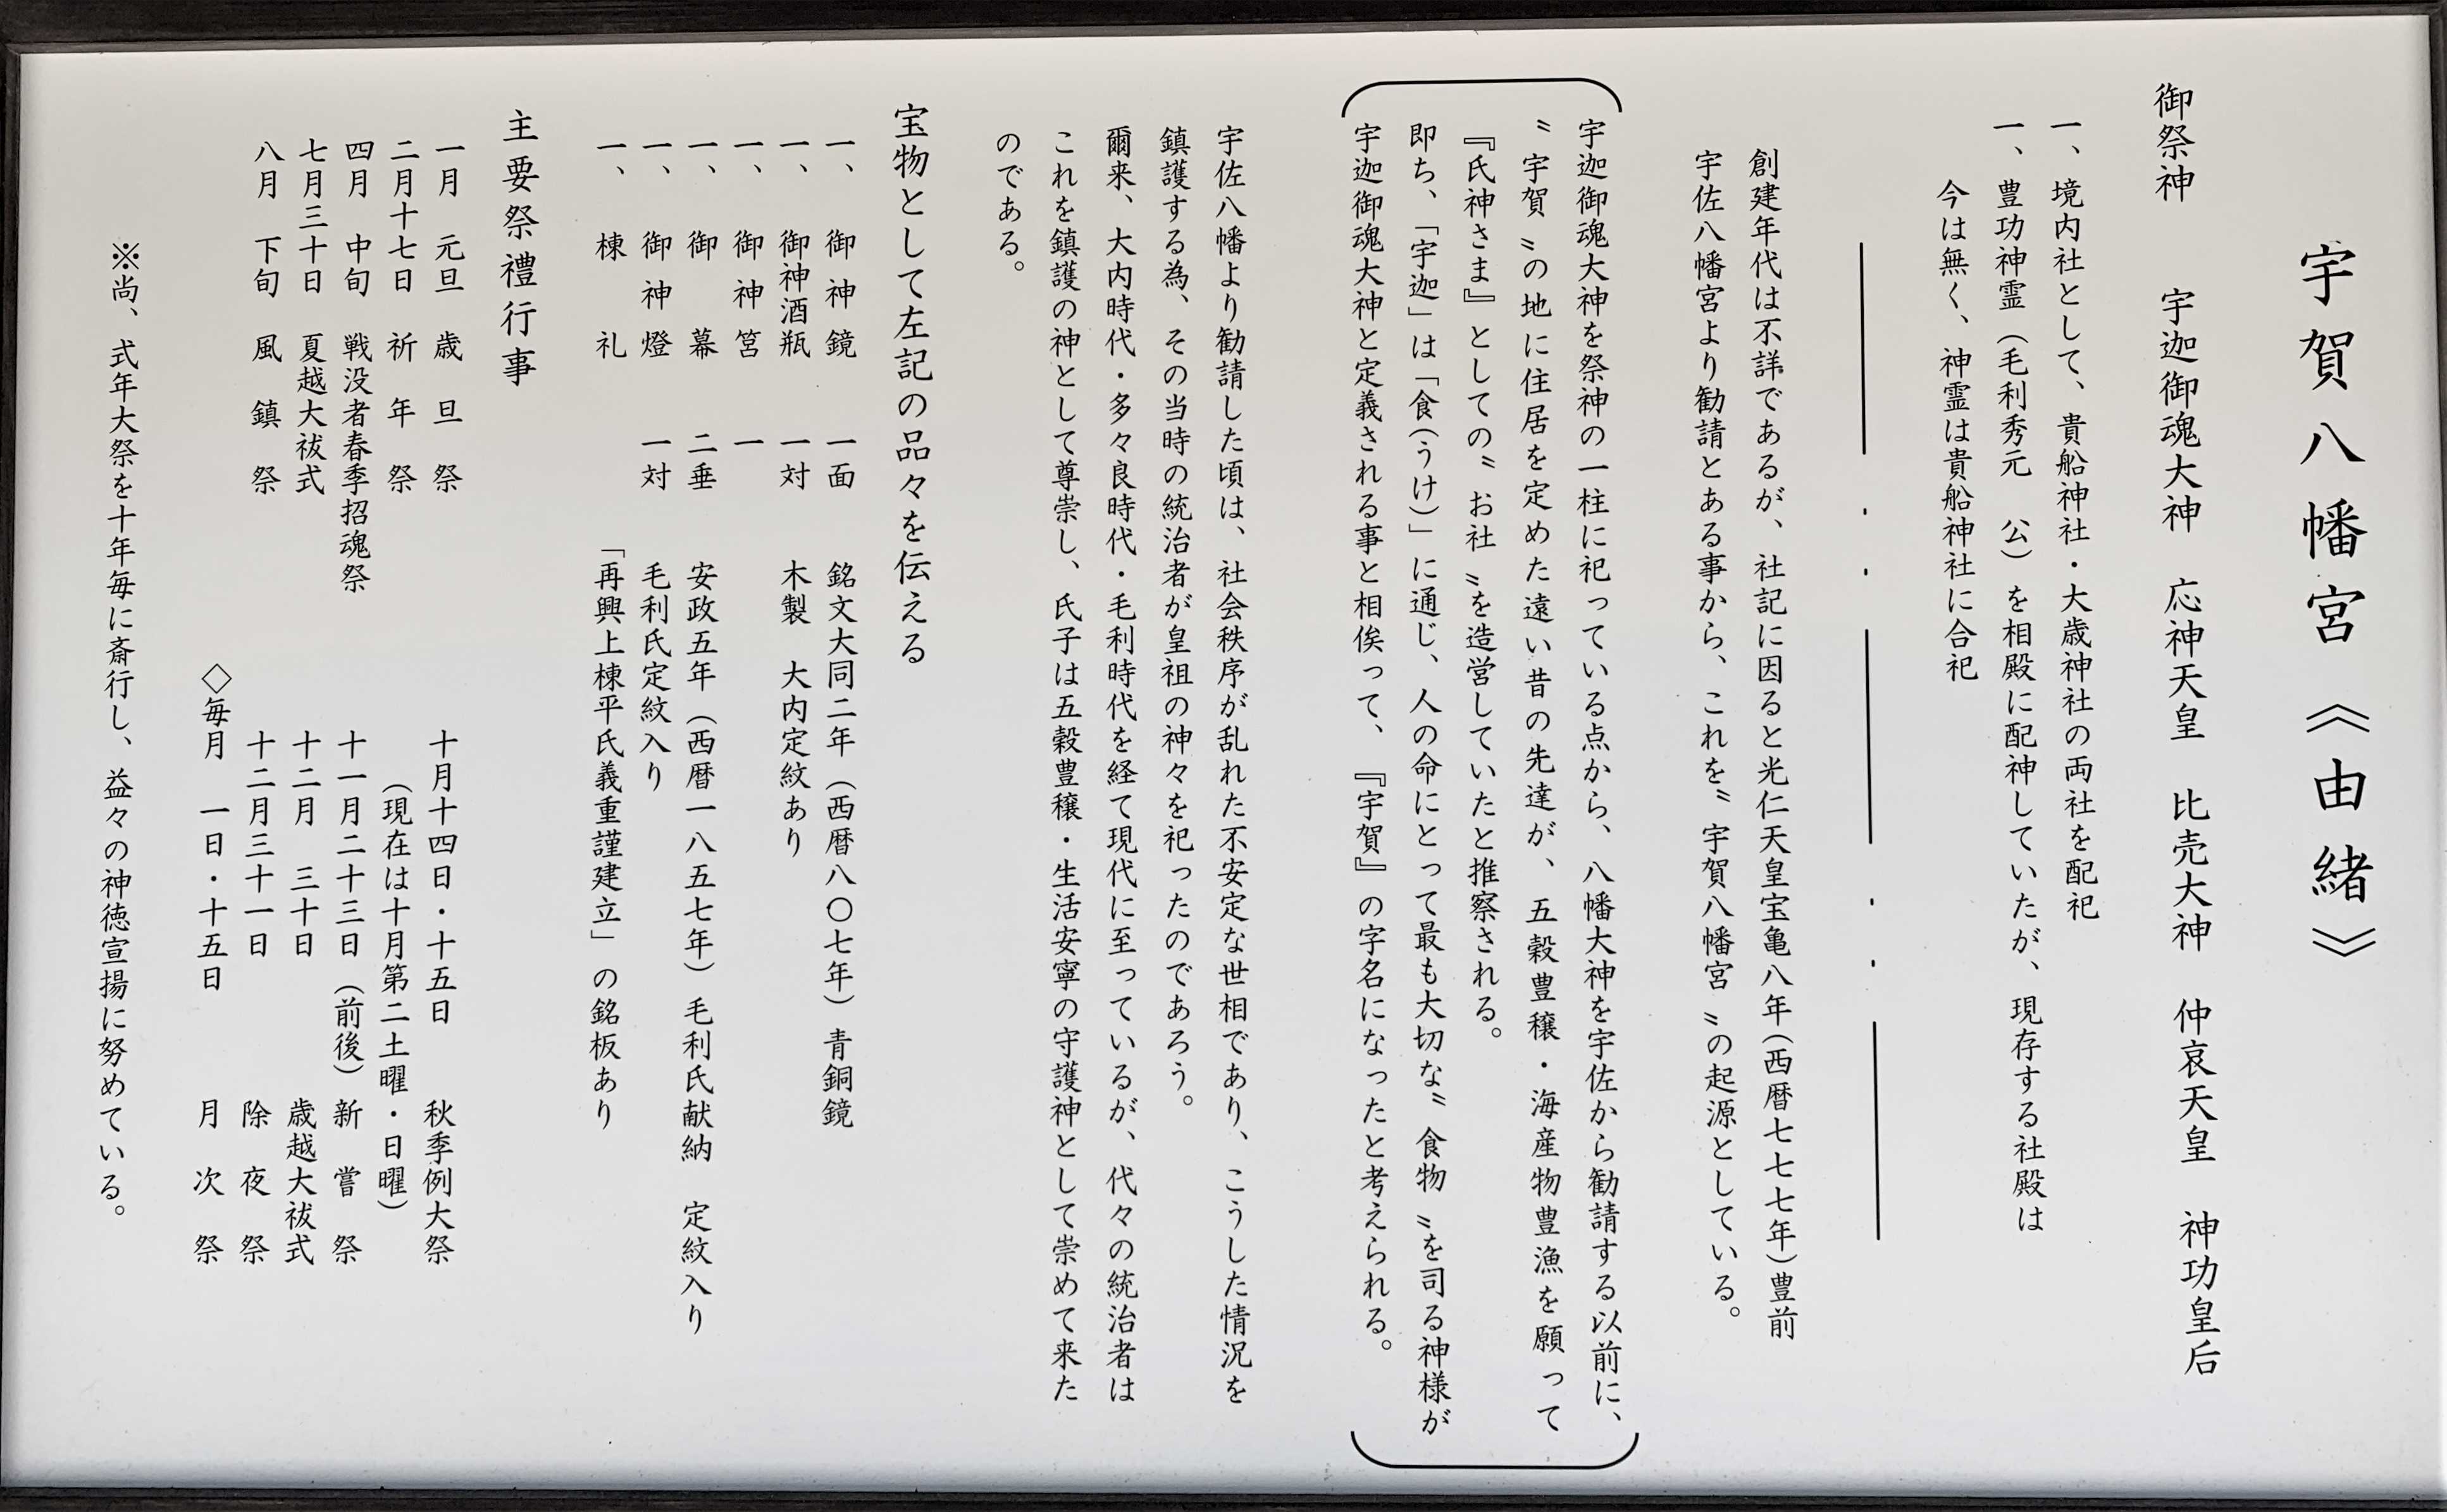 宇賀八幡宮《由緒》
御祭神　宇迦御魂大神　応神天皇　比売大神　仲哀天皇　神功皇后
一、境内社として、貴船神社・大歳神社の両社を配祀
一、豊功神霊（毛利秀元　公）を相殿に配神していたが、現存する社殿は
今は無く、神霊は貴船神社に合祀
創建年代は不詳であるが、社記に因ると光仁天皇宝亀八年（西暦七七七年）豊前
宇佐八幡宮より勧請とある事から、これを〝宇賀八幡宮〟の起源としている。
宇迦御魂大神を祭神の一柱に祀っている点から、八幡大神を宇佐から勧請する以前に、
〝宇賀〟の地に住居を定めた遠い昔の先達が、五穀豊穣・海産物豊漁を願って
『氏神さま』としての〝お社〟を造営していたと推察される。
即ち、「宇迦」は「食（うけ）」に通じ、人の命にとって最も大切な〝食物〟を司る神様が
宇迦御魂大神と定義される事と相俟って、『宇賀』の字名になったと考えられる。
宇佐八幡より勧請した頃は、社会秩序が乱れた不安定な世相であり、こうした情況を
鎮護する為、その当時の統治者が皇祖の神々を祀ったのであろう。
爾来、大内時代・多々良時代・毛利時代を経て現代に至っているが、代々の統治者は
これを鎮護の神として尊崇し、氏子は五穀豊穣・生活安寧の守護神として崇めて来た
のである。
宝物として左記の品々を伝える
一、御神鏡　一面　銘文大同二年（西暦八〇七年）青銅鏡
一、御神酒瓶　一対　木製　大内定紋あり
一、御神筥　一
一、御幕　二垂　安政五年（西暦一八五七年）毛利氏献納　定紋入り
一、御神燈　一対　毛利氏定紋入り
一、棟札　「再興上棟平氏義重謹建立」の銘板あり
主要祭禮行事
一月　元旦　歳旦祭
二月十七日　祈年祭
四月　中旬　戦没者春季招魂祭
七月三十日　夏越大祓式
八月　下旬　風鎮祭
十月十四日・十五日　秋季例大祭
（現在は十月第二土曜・日曜）
十一月二十三日（前後）新嘗祭
十二月　三十日　歳越大祓式
十二月三十一日　除夜祭
◇毎月　一日・十五日　月次祭
※尚、式年大祭を十年毎に斎行し、益々の神徳宣揚に努めている。